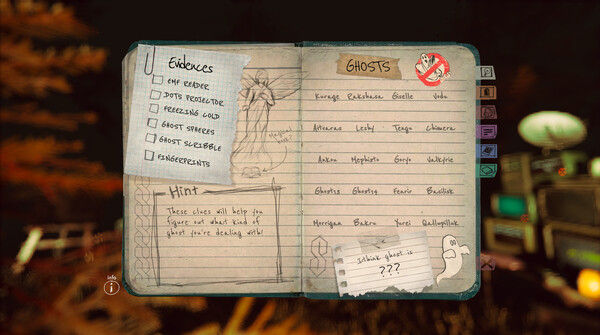 Evidences
EMF READER
DOTS PROJECTOR
FREEZING COLD
GHOST SPHERES
GHOST SCRIBBLE
FINGERPRINTS
Magical book!
Hint
These clues will help you
figure out what kind of
ghost you're dealing with!
GHOSTS
Kurage Rakshasa Giselle Vodu
Leshy Tengu Chimera
Ankou Mephisto Goryo Valkyrie
Ghost13 Ghost14 Fenrir Basilisk
Morrigan Bakru Yurei
I think ghost is...
???
Info